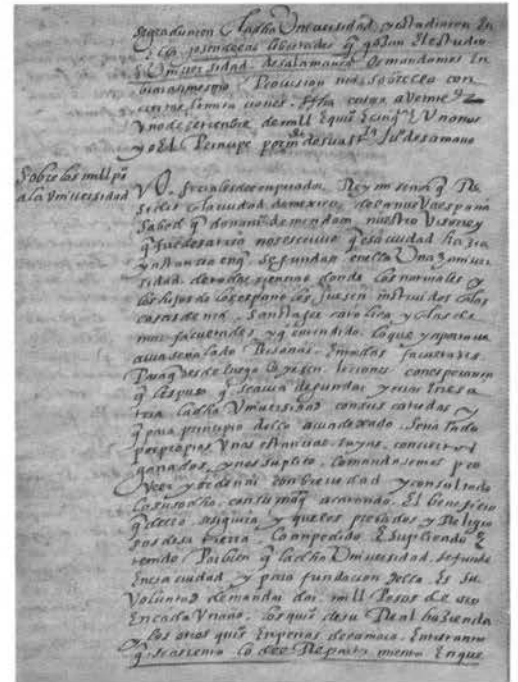 se graduaren En la dha Universidad y estudiaren En
Ella gozen de las libertades q gozan El estudio
E Universidad de salamanca Os mandamos En
Provision nra sobre ello con
ciertas limitaciones. ffha en a Veinte
y Uno de setienbre de mill E quis E cinqta E Un años
yo El Principe por mdo de su Al
Sobre los mill ps
a la Universidad
Officiales del enperador Rey mi señor q Re
siden En la ciudad de mexico de la nueva españa
Sabed q don anto de mendoça nuestro Visorrey
q fue desa tierra nos escrivio q esa ciudad hazia
ynstancia en q se fundase en ella Una Univer
sidad de todas siencias donde los naturales y
los hijos de los españoles fuesen instruidos En las
cosas de nra Santa fee catolica y En las de
mas facultades y q entendido lo que ynportava
avia señalado Personas En todas facultades
Para q desde luego leyesen liciones con esperança
q les puso q se avia de fundar y criar En esa
tria la dha Universidad con sus catedras y
q para principio dello avia dexado señalado
por propias Unas estancias suyas con ciertos
ganados y nos suplico lo mandasemos pro
veer y ordenar con brevedad y consultado
lo susodho con su magt acatando El beneficio
q dello se siguiria y que los prelados y Religio
sos desa tierra lo an pedido E Suplicado E
tenido Por bien q la dha Universidad se funde
En esa ciudad y para fundacion della Es su
Voluntad de mandar dar mill Pesos de oro
En cada Un año los quis de su Real hazienda
y los otros quis En penas de camara Entretanto
q se asienta lo del Repartimiento En que